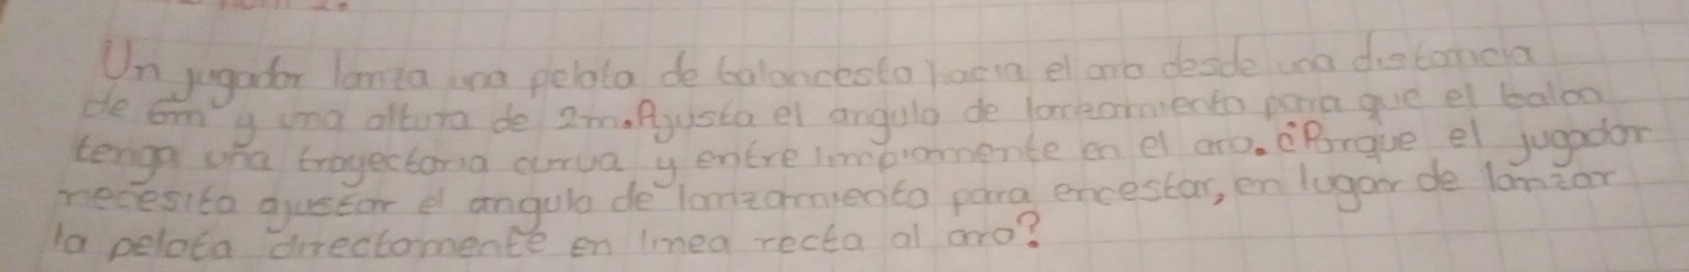 Un jugador lanza una pelota de baloncesto hacia el aro desde una distancia
de 6m y una altura de 2m. Ajusta el angulo de lanzamiento para que el balon
tenga una trayectoria curva y entre limpiamente en el aro. ¿Porque el jugador
necesita ajustar el angulo de lanzamiento para encestar, en lugar de lanzar
la pelota directamente en linea recta al aro?